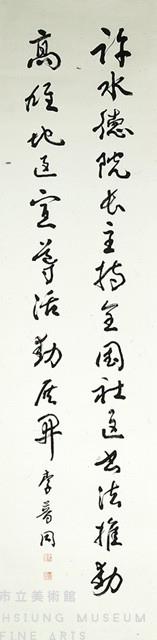 許水德院長主持全国社區書法推動
高雄地區宣導活動展開 李普同
市立美術館
HSIUNG MUSEUM
FINE ARTS